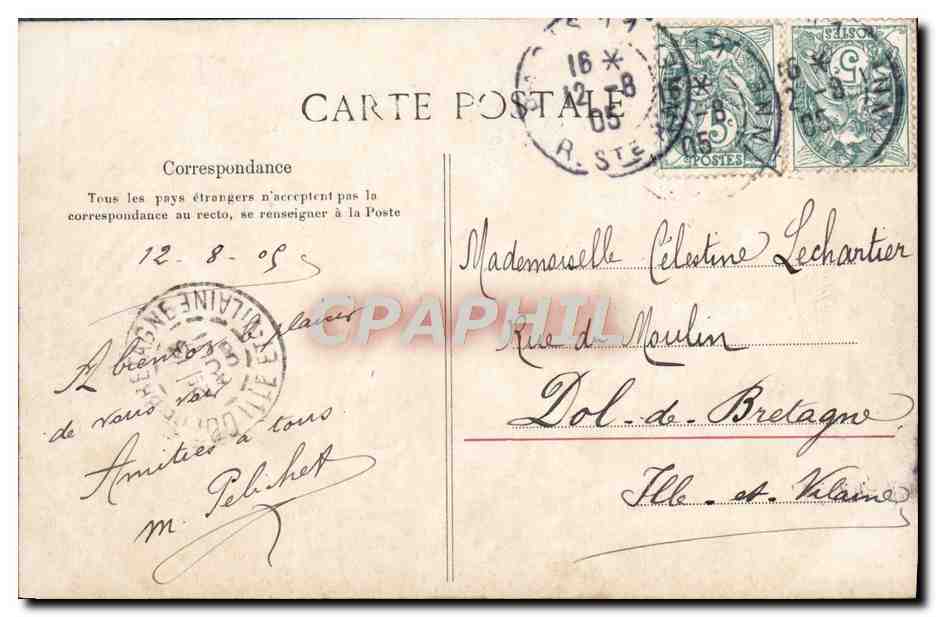 CARTE POSTALE
Correspondance
Tous les pays étrangers n'acceptent pas la
correspondance au recto, se renseigner à la Poste
12 - 8 - 05
A bientôt le plaisir
de vous voir
Amitiés à tous
M. Pelichet
16 *
12 -8
05
R. STE ANNE
5c
POSTES
16 *
-8
05
5c
POSTES
Mademoiselle Célestine Lechartier
Rue du Moulin
Dol-de-Bretagne
Ille-et-Vilaine
DOL DE BRETAGNE
ILLE-ET-VILAINE
CPAPHIL